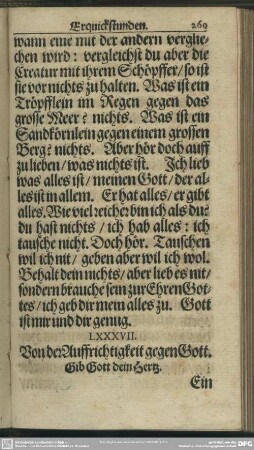 Erquickstunden. 269
wann eine mit der andern verglie-
chen wird: vergleichst du aber die
Creatur mit ihrem Schöpffer/so ist
sie vor nichts zu halten. Was ist ein
Tröpfflein im Regen gegen das
grosse Meer? nichts. Was ist ein
Sandkörnlein gegen einem grossen
Berg? nichts. Aber hör doch auff
zu lieben/was nichts ist. Ich lieb
was alles ist/meinen Gott/der al-
les ist in allem. Er hat alles/er gibt
alles. Wie viel reicher bin ich als du?
du hast nichts/ich hab alles: ich
tausche nicht. Doch hör. Tauschen
wil ich nit/geben aber wil ich wol.
Behalt dein nichts/aber lieb es nit/
sondern brauche sein zun Ehren Got-
tes/ich geb dir mein alles zu. Gott
ist mir und dir genug.
LXXXVII.
Von der Auffrichtigkeit gegen Gott.
Gib Gott dein Hertz.
Ein
DFG